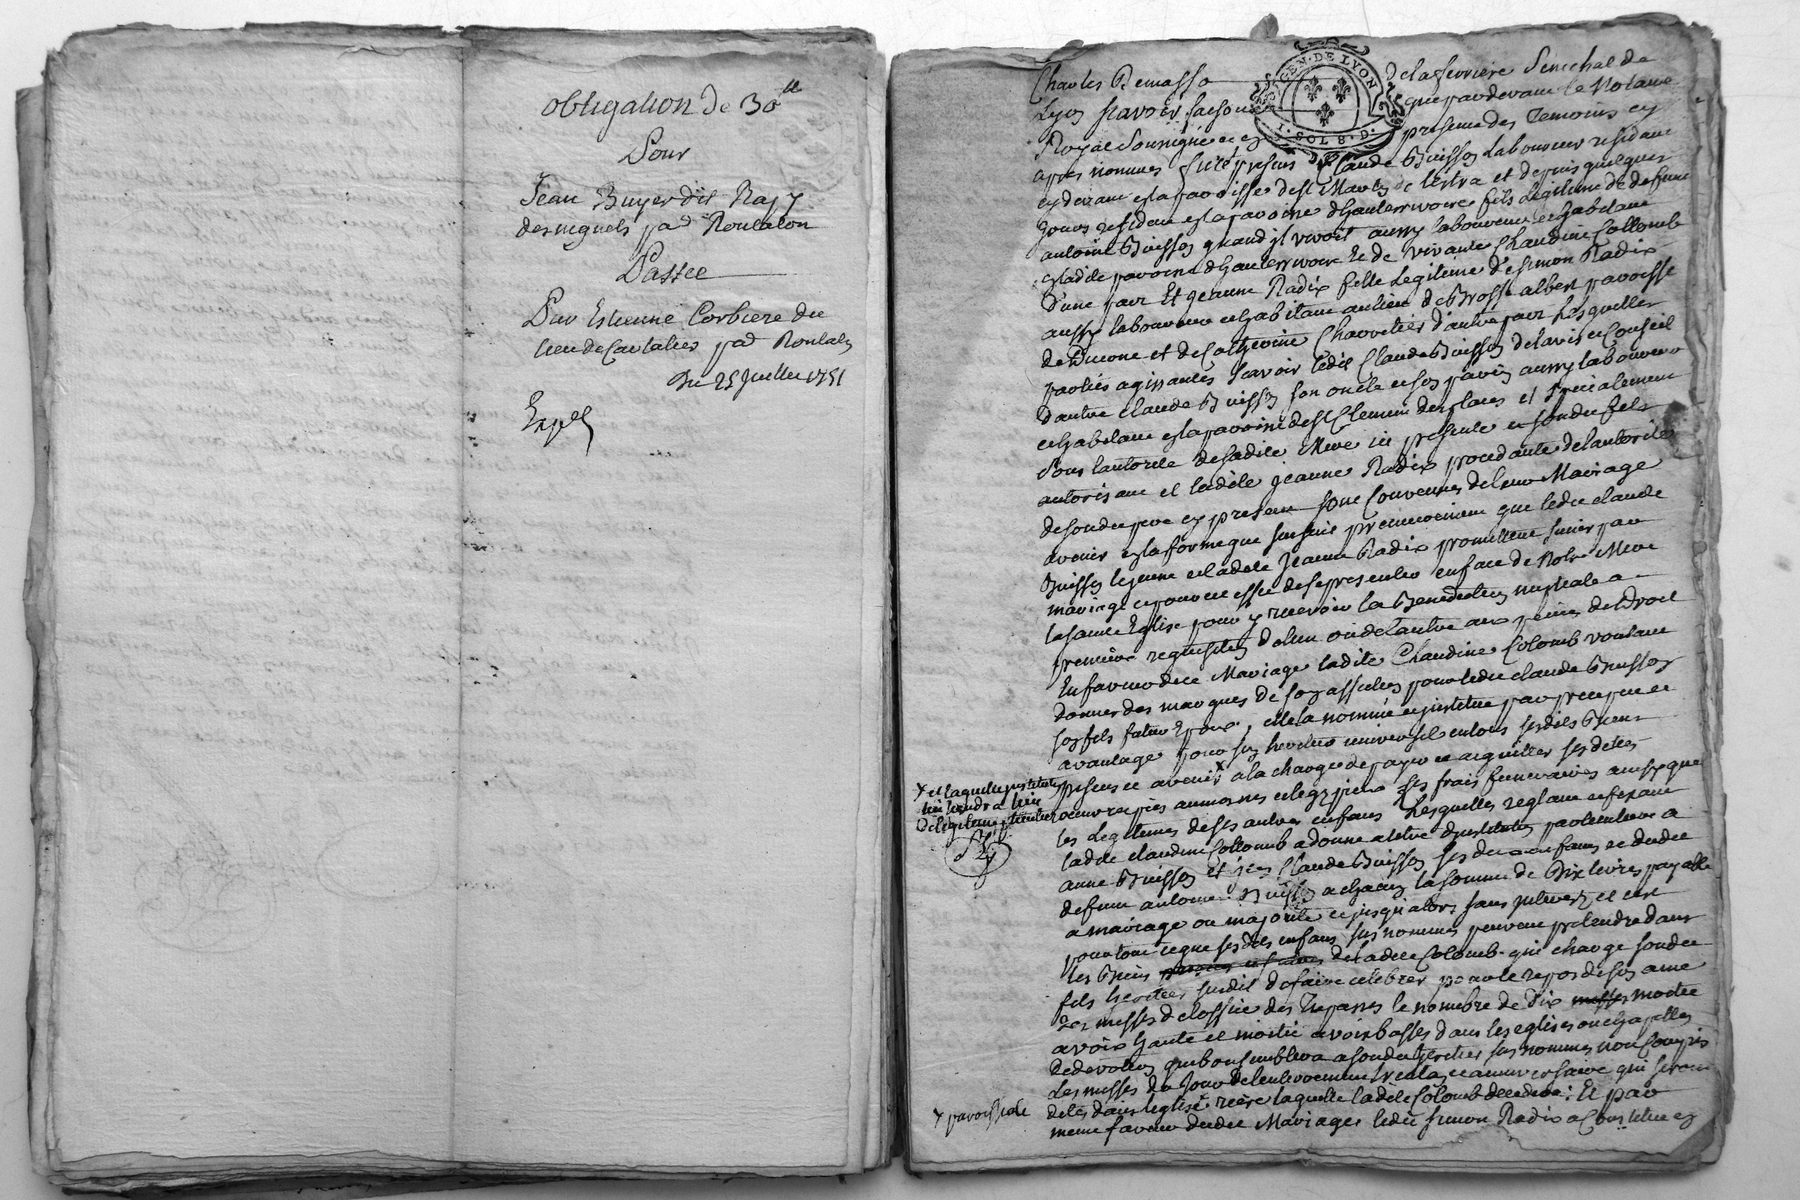 obligation de 30ll
Pour
Jean Buyer dit Razy
des niguels par Rontalon
Passée
Par Estienne Corbiere du
lieu de Cartalier par Rontalon
Du 25 Juillet 1751
Exped
GEN. DE LYON
1. SOL 8. D.
Charles Demasso de la ferriere Senechal de
Lyon scavoir faisons que pardevant le Notaire
Royal Soussigné et en presence des Temoins cy
apres nommes furent presens Claude Buisson Laboureur residant
cy devant en la paroisse de st Martin de Lestra et depuis quelques
jours resident en la paroisse d'hauterivoire fils Legitime de defunt
antoine Buisson quand il vivoit aussy laboureur et habitant
en ladite paroisse d'hauterivoire et de vivante Claudine Collomb
d'une part Et jeanne Radix fille Legitime de simon Radix
aussy laboureur et habitant au lieu de Grosse albert paroisse
de et de Catherine Charretier d'autre part Lesquelles
parties agissantes scavoir ledit Claude Buisson de lavis et Conseil
d'autre Claude Buisson son oncle et son parin aussy laboureur
et habitant en la paroisse de st Clement des places et specialement
sous lautorite de ladite Mere icy presente et sondit fils
autorisant et ladite jeanne Radix procedante de lautorité
de son dit pere icy present sont Convenus de leur Mariage
avenir en la forme que sensuit premierement que ledit claude
Buisson le jeune et ladite Jeanne Radix promettent sunir par
mariage et pour cet effet de se presenter en face de Notre Mere
la sainte Eglise pour y recevoir la Benediction nuptiale a
premiere requisition de lun ou de lautre aux peines de Droit
En faveur dudit Mariage ladite Claudine Colomb voulant
donner des marques de son affection pour ledit claude Buisson
son fils futur Epoux, elle la nommé et institue par preciput et
avantage pour son heritier universel en tous ses dits Biens
x et laquelle institution
lui tiendra lieu
de legitime paternelle
presens et avenir x a la charge de payer et acquitter ses dettes
oeuvres pies aumosnes et legs pieux ses frais funeraires aussy que
les Legitimes de ses autres enfans Lesquelles reglant et fixant
ladite claudine Collomb a donné a titre dinstitution particuliere a
anne Buisson et jean Claude Buisson ses deux enfans et dudit
defunt antoine Buisson a chacun la somme de Dix livres payable
a mariage ou majorité et jusqu'alors sans interest et cest
pour tout ce que ses dits enfans sus nommes peuvent pretendre dans
les Biens de ladite Colomb qui charge sondit
fils heritier susdit de faire celebrer pour le repos de son ame
des messes de loffice des Trepasses le nombre de Dix messes moitie
a voix haute et moitié a voix basses dans les eglises ou chapelles
de devotion que bon semblera a sondit heritier sus nommes non Compris
les messes du jour de lenterrement trentain et anniversaire qui seront
x paroissiale
dites dans leglise x riere laquelle ladite Colomb decedera; Et par
meme faveur dudit Mariage ledit simon Radix a Constitue en